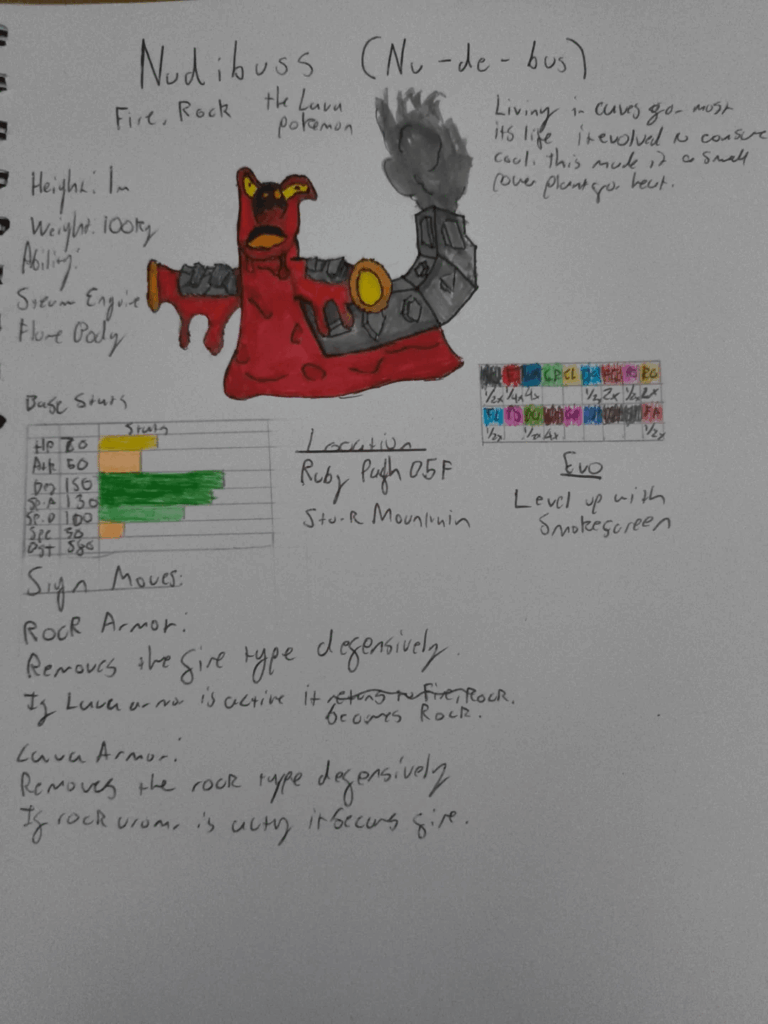 Nudibuss (Nu-de-bus)
Fire, Rock the Lava
pokemon
Living in caves for most
its life it evolved to consume
coal. this made it a small
power plant for heat.
Height: 1m
Weight: 100kg
Ability:
Steam Engine
Flame Body
Base Stats
Stats
HP 70
Atk 50
Def 150
Sp.A 130
Sp.D 100
Spe 30
1/2x 1/4x 4x 1/2x 2x 1/2x 2x
1/2x 4x 1/2x
Location
Ruby Path 05F
Evo
Level up with
Smokescreen
Sign Moves:
Rock Armor:
Removes the fire type defensively.
If Lava armor is active it returns to fire, Rock.
becomes Rock.
Lava Armor:
Removes the rock type defensively
If rock is it fire.